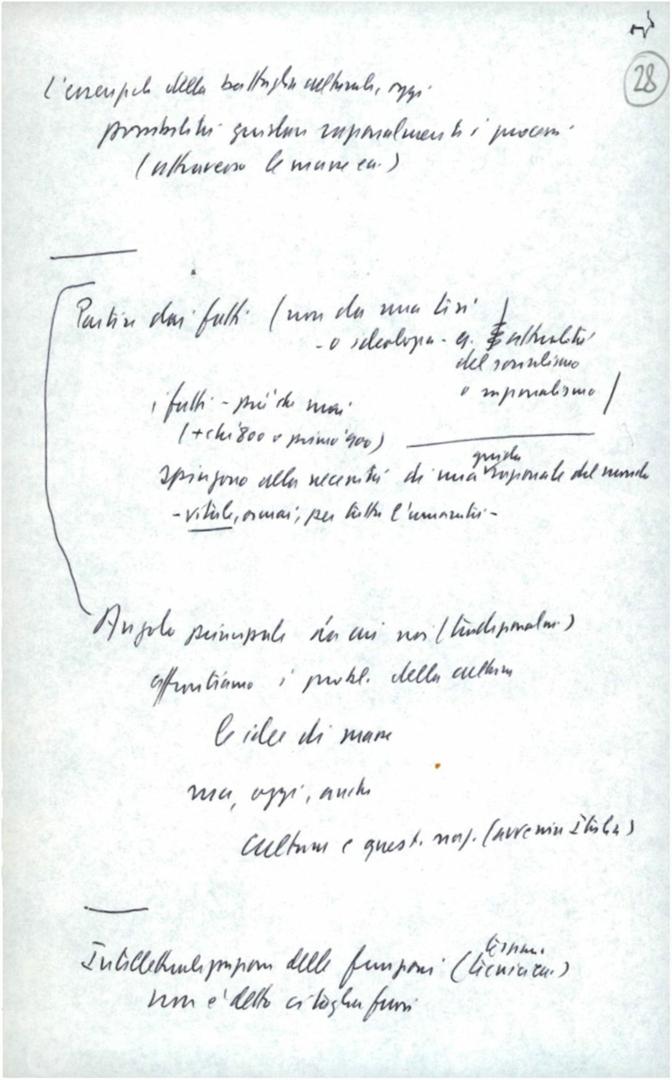 28
L'essenziale della battaglia culturale, oggi
possibilità guidare razionalmente i processi
(attraverso le masse ecc.)
Partire dai fatti (non da una tesi
- o ideologia - es. attualità
del socialismo
o razionalismo)
i fatti - più che mai
(+ che '800 o primo '900)
guida
spingono alla necessità di una razionale del mondo
- vitale, ormai, per tutta l'umanità -
Angolo principale da cui noi (tradizionalm.)
affrontiamo i probl. della cultura
le idee di massa
ma, oggi, anche
cultura e quest. naz. (avvenire Italia)
Intellettuali delle funzioni (tecnici ecc.)
non è detto ci tolga fuori